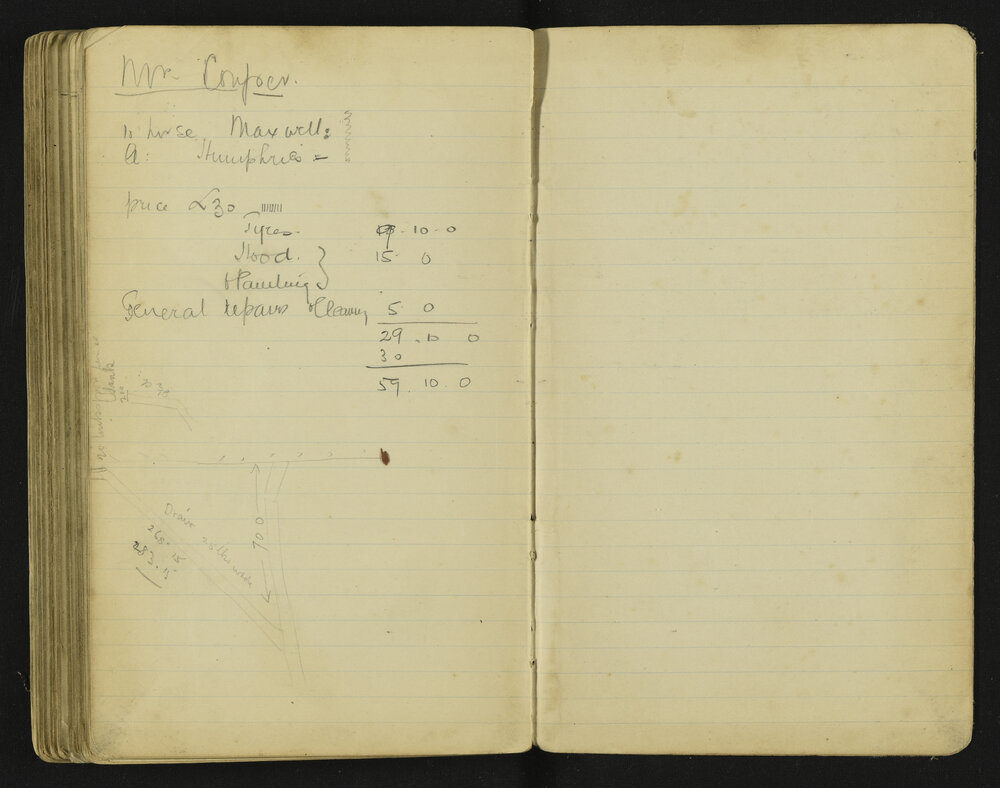 Mr Couper.
10 horse Maxwell:
A: Humphries =
price £30
Tyres. 9. 10. 0
Hood. } 15 0
Painting }
General repairs & Cleaning 5 0
29. 10 0
30
59. 10. 0
Drain
268. 15
283. 15
wide
700